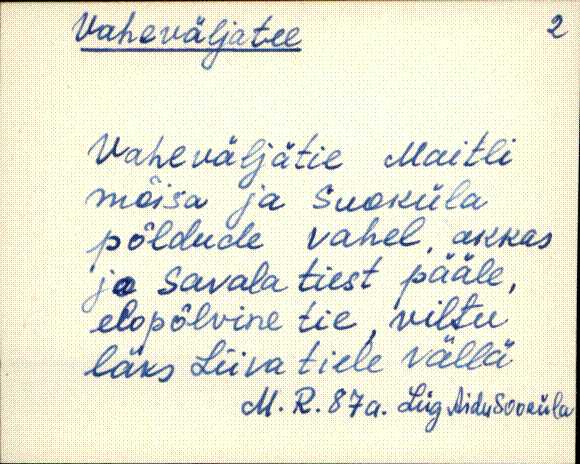 Vaheväljatee 2
Vaheväljätie Maitli
mõisa ja Suoküla
põldude vahel, akkas
jo Savala tiest pääle,
elopõlvine tie, viltu
läks Liiva tiele vällä
M. R. 87a. Lüg Aidu Sooküla